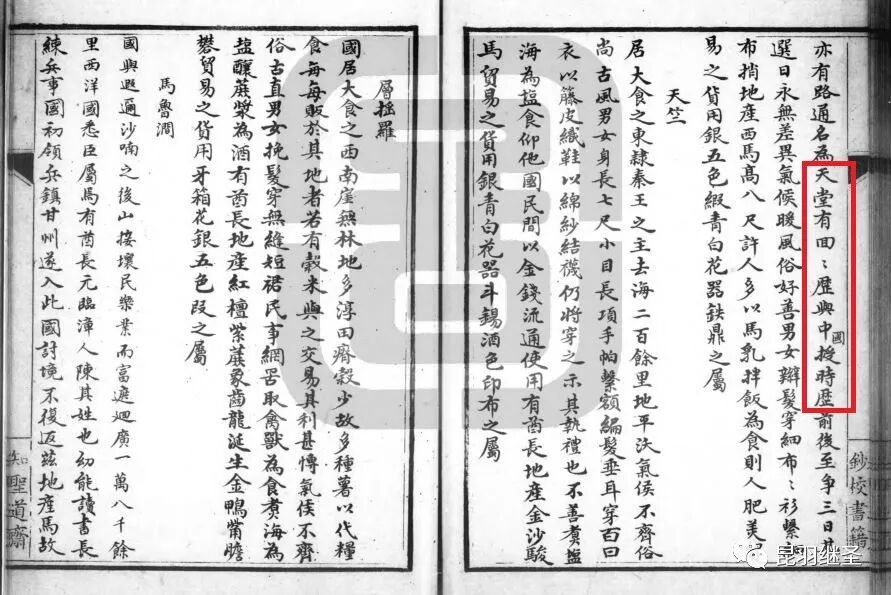 亦有路通名為天堂有回〻歷與中國授時歷前後至爭三日其
選日永無差異氣候暖風俗好善男女辮髮穿細布〻衫繫
布捎地產西馬高八尺許人多以馬乳拌飯為食則人肥美
易之貨用銀五色緞青白花器鉄鼎之屬
天竺
居大食之東隸秦王之主去海二百餘里地平沃氣候不齊俗
尚古風男女身長七尺小目長項手帕繫額編髮垂耳穿百回
衣以籐皮織鞋以綿紗結襪仍將穿之示其執禮也不善煑塩
海為塩食仰他國民間以金錢流通使用有酋長地產金沙駿
馬貿易之貨用銀青白花器斗錫酒色印布之屬
鈔校書籍
層摇羅
國居大食之西南崖無林地多淳田瘠穀少故多種薯以代糧
食每每販於其地者若有穀米與之交易其利甚慱氣候不齊
俗古直男女挽髮穿無縫短裙民事網罟取禽獸為食煑海為
塩釀蔗漿為酒有酋長地產紅檀紫蔗象齒龍涎生金鴨觜膽
礬貿易之貨用牙箱花銀五色叚之屬
馬魯澗
國與遐邇沙喃之後山接壤民樂業而富遮迴廣一萬八千餘
里西洋國悉臣屬焉有酋長元臨漳人陳其姓也幼能讀書長
練兵事國初領兵鎮甘州遂入此國討境不復返茲地產馬故
知聖道齋
昆羽继圣